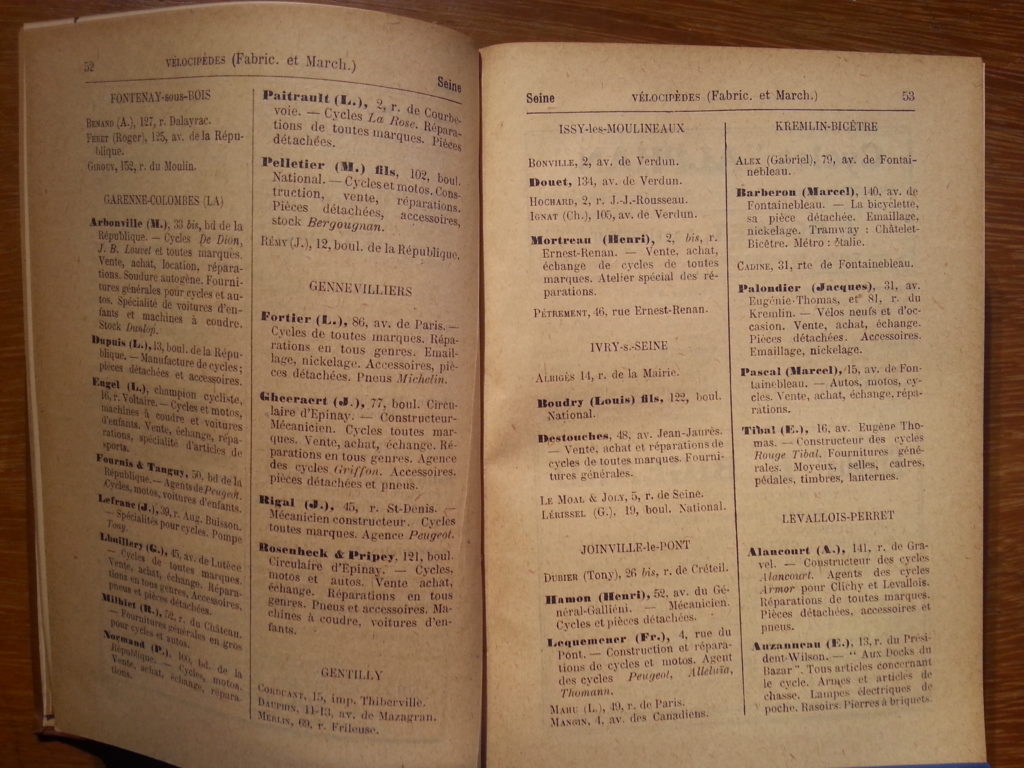 52
VÉLOCIPÈDES (Fabric. et March.)
Seine
FONTENAY-sous-BOIS
BENAND (A.), 127, r. Dalayrac.
FERET (Roger), 125, av. de la Répu-
blique.
GIROUX, 152, r. du Moulin.
GARENNE-COLOMBES (LA)
Arbonville (M.), 33 bis, bd de la
République. — Cycles De Dion,
J. B. Louvet et toutes marques.
Vente, achat, location, répara-
tions. Soudure autogène. Fourni-
tures générales pour cycles et au-
tos. Spécialité de voitures d'en-
fants et machines à coudre.
Stock Dunlop.
Dupuis (L.), 13, boul. de la Répu-
blique. — Manufacture de cycles ;
pièces détachées et accessoires.
Engel (L.), champion cycliste,
16, r. Voltaire. — Cycles et motos,
machines à coudre et voitures
d'enfants. Vente, échange, répa-
rations, spécialité d'articles de
sports.
Fournis & Tanguy, 50, bd de la
République. — Agents de Peugeot.
Cycles, motos, voitures d'enfants.
Lefranc (J.), 39, r. Aug. Buisson.
— Spécialités pour cycles. Pompe
Tony.
Lhuillery (G.), 45, av. de Lutèce
— Cycles de toutes marques.
Vente, achat, échange. Répara-
tions en tous genres. Accessoires,
pneus et pièces détachées.
Milhiet (R.), 52, r. du Château.
— Fournitures générales en gros
pour cycles et autos.
Normand (P.), 100, bd. de la
République. — Cycles, motos.
Vente, achat, échange, répara-
tions.
Paitrault (L.), 2, r. de Courbe-
voie. — Cycles La Rose. Répara-
tions de toutes marques. Pièces
détachées.
Pelletier (M.) fils, 102, boul.
National. — Cycles et motos. Cons-
truction, vente, réparations.
Pièces détachées, accessoires,
stock Bergougnan.
RÉMY (J.), 12, boul. de la République.
GENNEVILLIERS
Fortier (L.), 86, av. de Paris. —
Cycles de toutes marques. Répa-
rations en tous genres. Email-
lage, nickelage. Accessoires, piè-
ces détachées. Pneus Michelin.
Gheeraert (J.), 77, boul. Circu-
laire d'Epinay. — Constructeur-
Mécanicien. Cycles toutes mar-
ques. Vente, achat, échange. Ré-
parations en tous genres. Agence
des cycles Griffon. Accessoires,
pièces détachées et pneus.
Rigal (J.), 45, r. St-Denis. —
Mécanicien constructeur. Cycles
toutes marques. Agence Peugeot.
Rosenheck & Pripey, 121, boul.
Circulaire d'Epinay. — Cycles,
motos et autos. Vente achat,
échange. Réparations en tous
genres. Pneus et accessoires. Ma-
chines à coudre, voitures d'en-
fants.
GENTILLY
CORDUANT, 15, imp. Thiberville.
DAUPHIN, 11-13, av. de Mazagran.
MERLIN, 69, r. Frileuse.
Seine
VÉLOCIPÈDES (Fabric. et March.)
53
ISSY-les-MOULINEAUX
BONVILLE, 2, av. de Verdun.
Douet, 134, av. de Verdun.
HOCHARD, 2, r. J.-J.-Rousseau.
IGNAT (Ch.), 105, av. de Verdun.
Mortreau (Henri), 2, bis, r.
Ernest-Renan. — Vente, achat,
échange de cycles de toutes
marques. Atelier spécial des ré-
parations.
PÉTREMENT, 46, rue Ernest-Renan.
IVRY-s.-SEINE
ALBIGÈS 14, r. de la Mairie.
Boudry (Louis) fils, 122, boul.
National.
Destouches, 48, av. Jean-Jaurès.
— Vente, achat et réparations de
cycles de toutes marques. Fourni-
tures générales.
LE MOAL & JOLY, 5, r. de Seine.
LÉRISSEL (G.), 19, boul. National.
JOINVILLE-le-PONT
DUBIER (Tony), 26 bis, r. de Créteil.
Hamon (Henri), 52, av. du Gé-
néral-Galliéni. — Mécanicien.
Cycles et pièces détachées.
Lequemener (Fr.), 4, rue du
Pont. — Construction et répara-
tions de cycles et motos. Agent
des cycles Peugeot, Alleluïa,
Thomann.
MAHU (L.), 49, r. de Paris.
MANGIN, 4, av. des Canadiens.
KREMLIN-BICÊTRE
ALEX (Gabriel), 79, av. de Fontai-
nebleau.
Barberon (Marcel), 140, av. de
Fontainebleau. — La bicyclette,
sa pièce détachée. Emaillage,
nickelage. Tramway : Châtelet-
Bicêtre. Métro : Italie.
CADINE, 31, rte de Fontainebleau.
Palondier (Jacques), 31, av.
Eugénie-Thomas, et 81, r. du
Kremlin. — Vélos neufs et d'oc-
casion. Vente, achat, échange.
Pièces détachées. Accessoires.
Emaillage, nickelage.
Pascal (Marcel), 45, av. de Fon-
tainebleau. — Autos, motos, cy-
cles. Vente, achat, échange, répa-
rations.
Tibal (E.), 16, av. Eugène Tho-
mas. — Constructeur des cycles
Rouge Tibal. Fournitures géné-
rales. Moyeux, selles, cadres,
pédales, timbres, lanternes.
LEVALLOIS-PERRET
Alancourt (A.), 141, r. de Gra-
vel. — Constructeur des cycles
Alancourt. Agents des cycles
Armor pour Clichy et Levallois.
Réparations de toutes marques.
Pièces détachées, accessoires et
pneus.
Auzanneau (E.), 13, r. du Prési-
dent-Wilson. — “ Aux Docks du
Bazar ”. Tous articles concernant
le cycle. Armes et articles de
chasse. Lampes électriques de
poche. Rasoirs. Pierres à briquets.